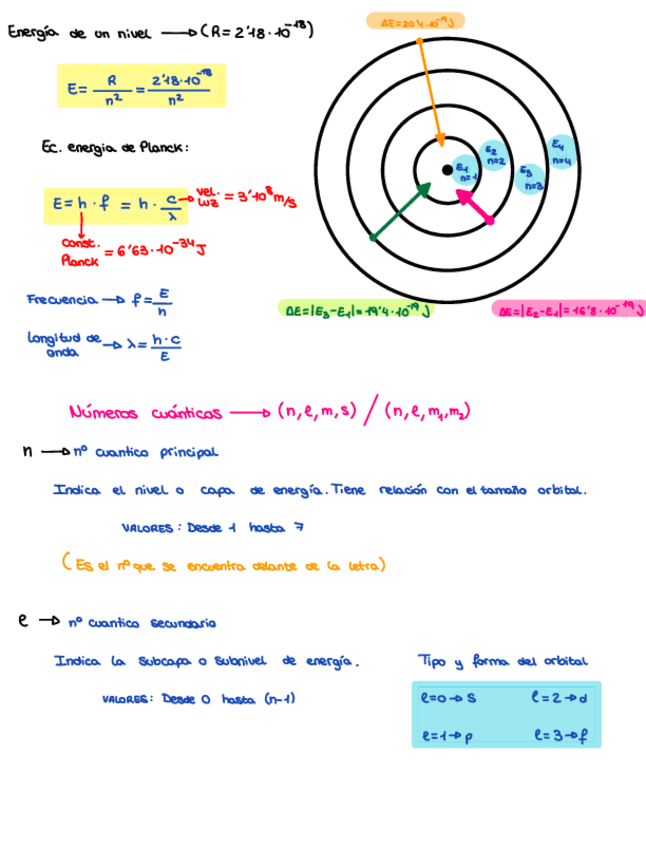 Energía de un nivel → (R = 2'18 · 10^-18)
ΔE = 20'4 · 10^-19 J
E = R/n² = 2'18 · 10^-18/n²
Ec. energia de Planck:
E = h · f = h · c/λ → vel. luz = 3'10^8 m/s
const. Planck = 6'63 · 10^-34 J
E1 n=1
E2 n=2
E3 n=3
E4 n=4
Frecuencia → f = E/h
ΔE = |E3 - E1| = 19'4 · 10^-19 J
ΔE = |E2 - E1| = 16'8 · 10^-19 J
Longitud de onda → λ = h · c/E
Números cuánticos → (n, l, m, s) / (n, l, m1, m2)
n → nº cuantico principal
Indica el nivel o capa de energía. Tiene relación con el tamaño orbital.
VALORES: Desde 1 hasta 7
(Es el nº que se encuentra delante de la letra)
l → nº cuantico secundario
Indica la subcapa o subnivel de energía.
Tipo y forma del orbital
VALORES: Desde 0 hasta (n-1)
l=0 → s
l=2 → d
l=1 → p
l=3 → f